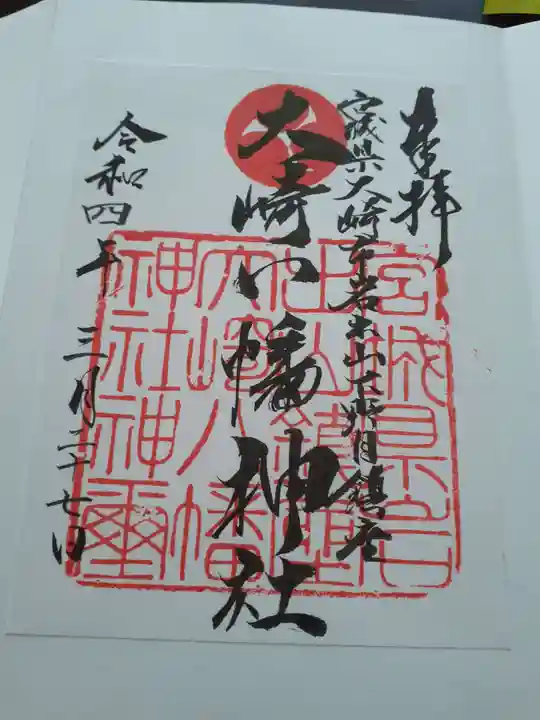 奉拝
宮城県大崎市岩出山下野目鎮座
大崎八幡神社
令和四年三月二十七日
宮城県岩
出山鎮座
大崎八幡
神社神璽